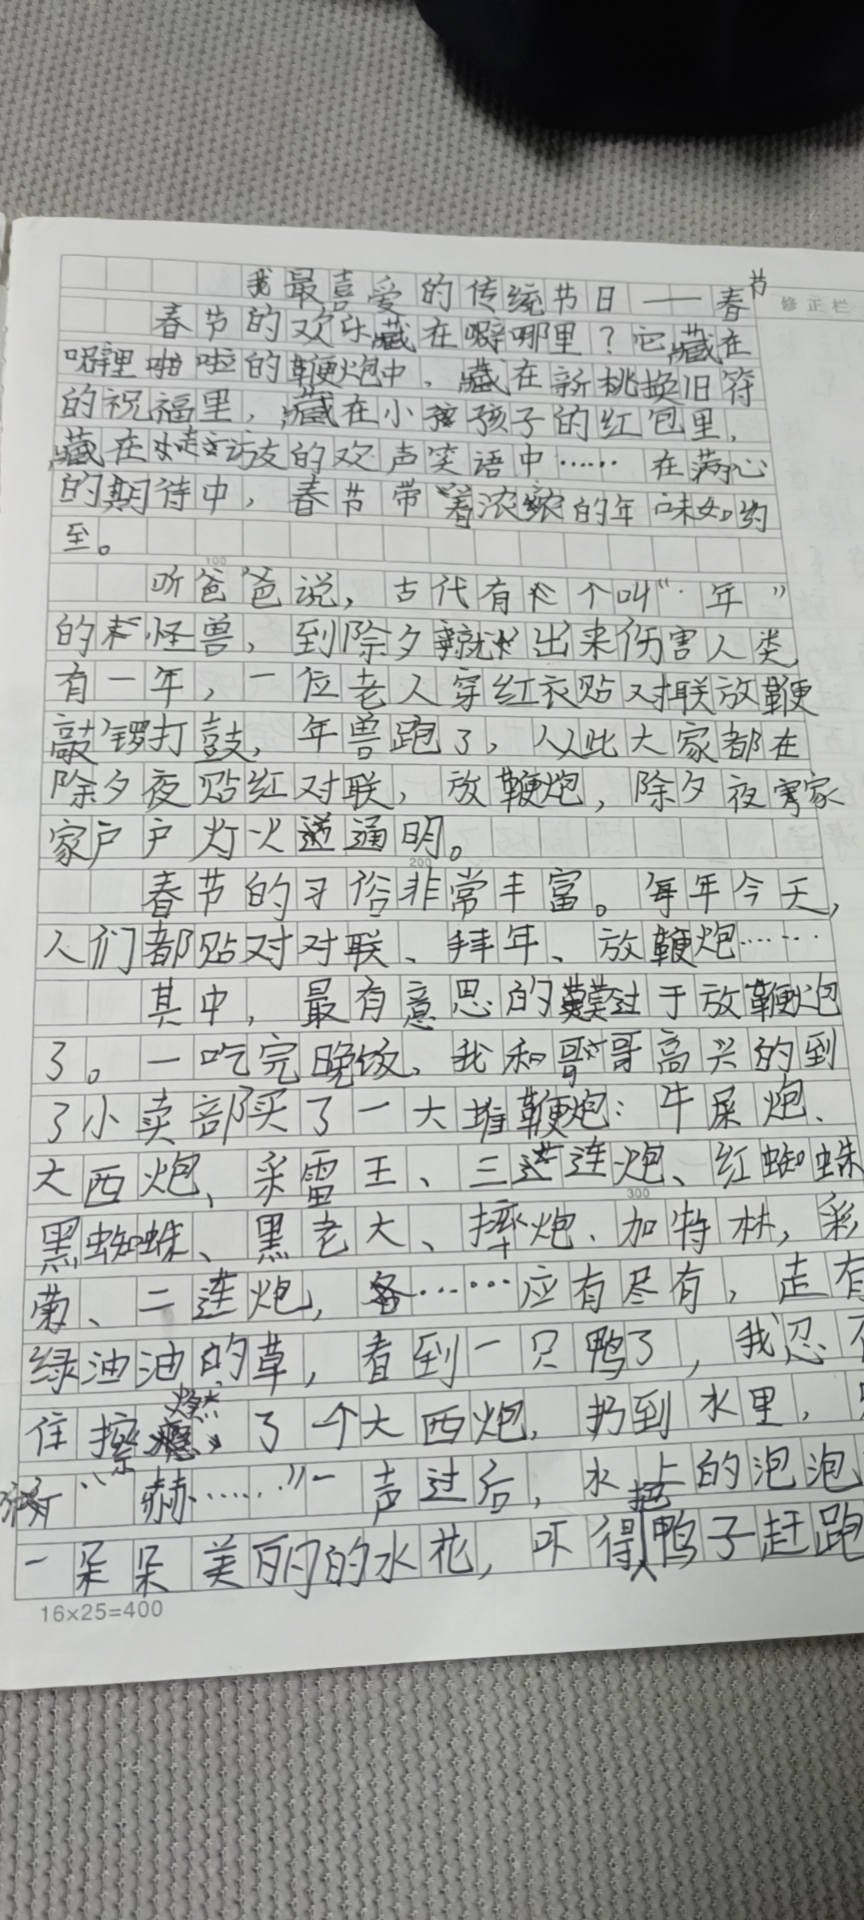 我最喜爱的传统节日——春节
修正栏
春节的欢乐藏在哪里？它藏在
噼里啪啦的鞭炮中，藏在新桃换旧符
的祝福里，藏在小孩子的红包里，
藏在走访友的欢声笑语中……在满心
的期待中，春节带着浓浓的年味如约
至。
100
听爸爸说，古代有个叫“年”
的怪兽，到除夕就出来伤害人类
有一年，一位老人穿红衣贴对联放鞭
敲锣打鼓，年兽跑了，从此大家都在
除夕夜贴红对联，放鞭炮，除夕夜家
家户户灯火通明。
200
春节的习俗非常丰富。每年今天，
人们都贴对对联、拜年、放鞭炮……
其中，最有意思的莫过于放鞭炮
了。一吃完晚饭，我和哥哥高兴的到
了小卖部买了一大堆鞭炮：牛屎炮、
大西炮、采雷王、三连炮、红蜘蛛
300
黑蜘蛛、黑老大、摔炮、加特林，彩
菊、二连炮，……应有尽有，走有
绿油油的草，看到一只鸭了，我忍不
住擦燃了个大西炮，扔到水里，
“赫……”一声过后，水上的泡泡
一朵朵美丽的水花，吓得把鸭子赶跑
16×25=400